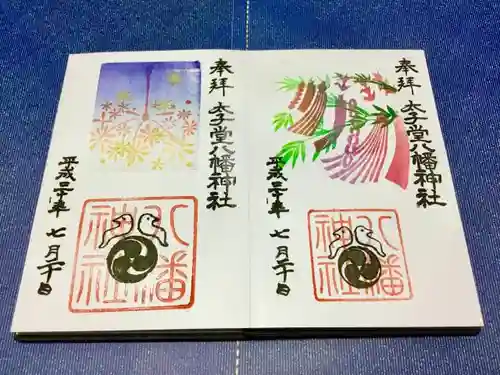 奉拝
太子堂八幡神社
平成
七月二十日
八幡
神社
奉拝
太子堂八幡神社
平成
七月二十日
八幡
神社